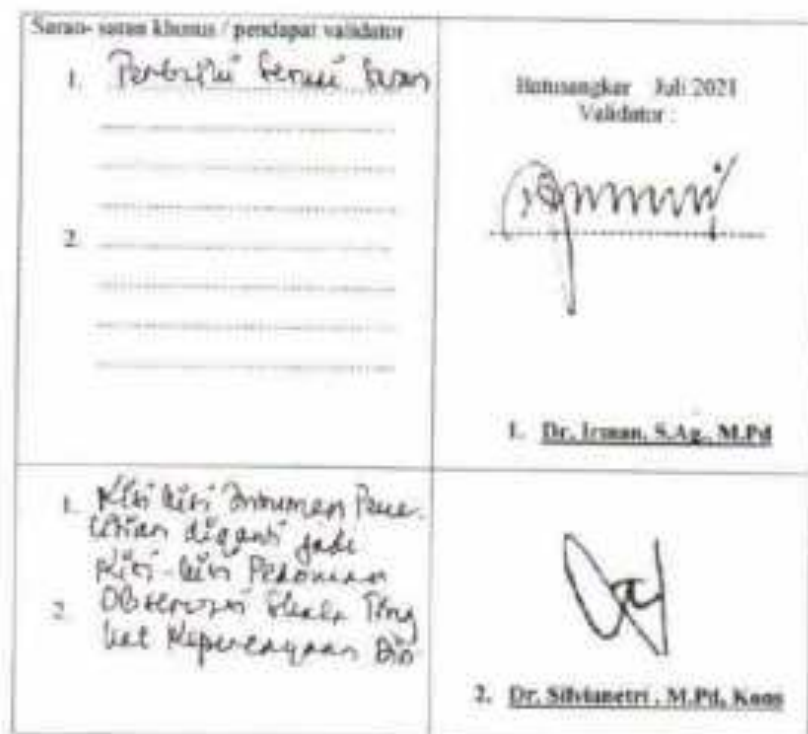 Saran- saran khusus / pendapat validator
1. Perbaiki sesuai saran
2.
Batusangkar Juli 2021
Validator :
1. Dr. Irman, S.Ag., M.Pd
1. Kisi kisi Instrumen Pene-
litian diganti jadi
Kisi-kisi Pedoman
2. Observasi Skala Ting
kat Kepercayaan Diri
2. Dr. Silvianetri , M.Pd, Kons